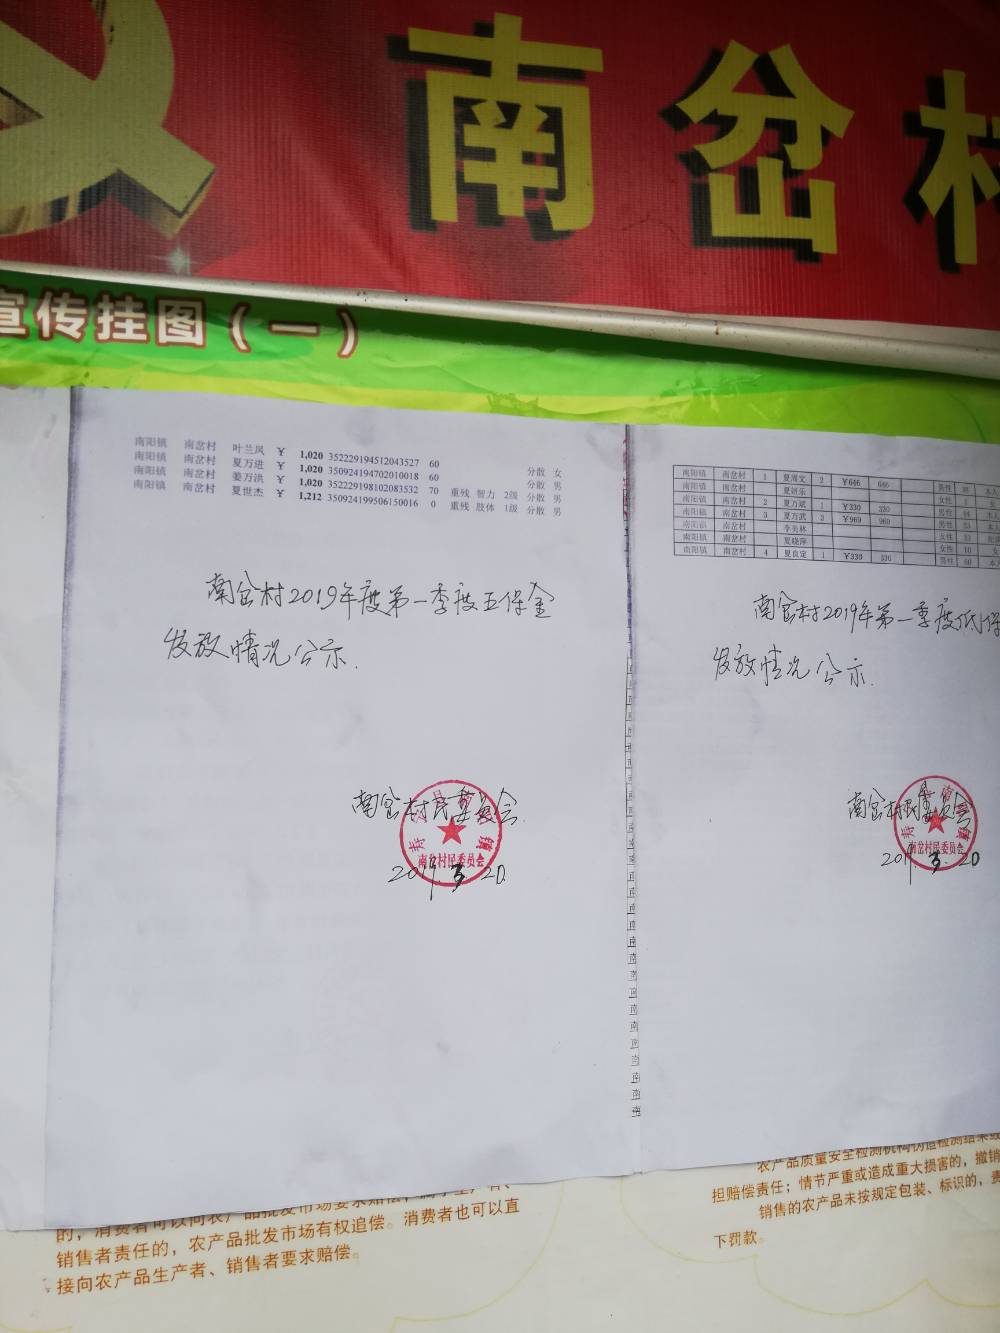 南岔村
宣传挂图（一）
南阳镇 南岔村 叶兰凤 ¥ 1,020 352229194512043527 60 分散 女
南阳镇 南岔村 夏万进 ¥ 1,020 350924194702010018 60 分散 男
南阳镇 南岔村 姜万洪 ¥ 1,020 352229198102083532 70 重残 智力 2级 分散 男
南阳镇 南岔村 夏世杰 ¥ 1,212 350924199506150016 0 重残 肢体 1级 分散 男
南岔村2019年度第一季度五保金
发放情况公示.
南岔村民委员会.
南岔村民委员会
2019.3.20
南阳镇 南岔村 1 夏周文 2 ¥646 646 男性
南阳镇 南岔村 女性
南阳镇 南岔村 2 夏万斌 1 ¥330 330 男性
南阳镇 南岔村 3 夏万武 3 ¥969 969 男性
南阳镇 南岔村 李美林 女性
南阳镇 南岔村 夏晓萍 女性
南阳镇 南岔村 4 夏良定 1 ¥330 330 男性
南岔村2019年第一季度低保
发放情况公示.
南岔村民委员会
南岔村民委员会
2019.3.20
的，消费者可以向农产品批发市场要求赔偿；属于生产者、
销售者责任的，农产品批发市场有权追偿。消费者也可以直
接向农产品生产者、销售者要求赔偿。
农产品质量安全检测机构伪造检测结果
担赔偿责任；情节严重或造成重大损害的，撤销
销售的农产品未按规定包装、标识的，责
下罚款。